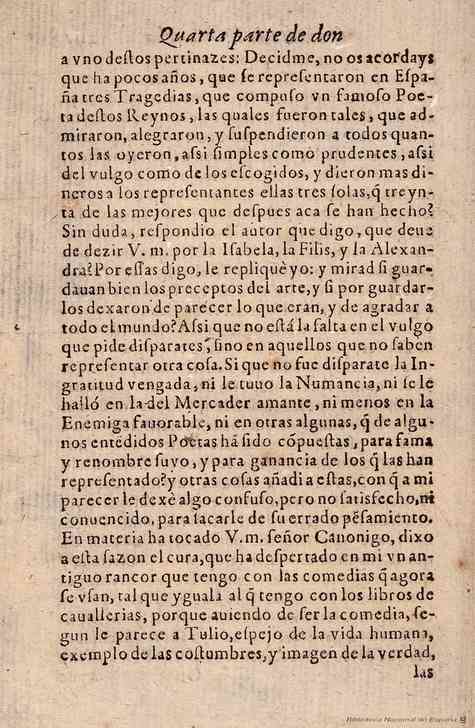 Quarta parte de don
a vno deſtos pertinazes: Decidme, no os acordays
que ha pocos años, que ſe repreſentaron en Eſpa-
ña tres Tragedias, que compuſo vn famoſo Poe-
ta deſtos Reynos, las quales fueron tales, que ad-
miraron, alegraron, y ſuſpendieron a todos quan-
tos las oyeron, aſsi ſimples como prudentes, aſsi
del vulgo como de los eſcogidos, y dieron mas di-
neros a los repreſentantes ellas tres ſolas, q̃ treyn-
ta de las mejores que deſpues aca ſe han hecho?
Sin duda, reſpondio el autor que digo, que deue
de dezir V. m. por la Iſabela, la Filis, y la Alexan-
dra? Por eſſas digo, le repliquè yo: y mirad ſi guar-
dauan bien los preceptos del arte, y ſi por guardar-
los dexaron de parecer lo que eran, y de agradar a
todo el mundo? Aſsi que no eſtá la falta en el vulgo
que pide diſparates, ſino en aquellos que no ſaben
repreſentar otra coſa. Si que no fue diſparate la In-
gratitud vengada, ni le tuuo la Numancia, ni ſe le
halló en la del Mercader amante, ni menos en la
Enemiga fauorable, ni en otras algunas, q̃ de algu-
nos entẽdidos Poetas hã ſido cõpueſtas, para fama
y renombre ſuyo, y para ganancia de los q̃ las han
repreſentado? y otras coſas añadi a eſtas, con q̃ a mi
parecer le dexè algo confuſo, pero no ſatisfecho, ni
conuencido, para ſacarle de ſu errado pẽſamiento.
En materia ha tocado V. m. ſeñor Canonigo, dixo
a eſta ſazon el cura, que ha deſpertado en mi vn an-
tiguo rancor que tengo con las comedias q̃ agora
ſe vſan, tal que yguala al q̃ tengo con los libros de
cauallerias, porque auiendo de ſer la comedia, ſe-
gun le parece a Tulio, eſpejo de la vida humana,
exemplo de las coſtumbres, y imagen de la verdad,
las
Biblioteca Nacional de España